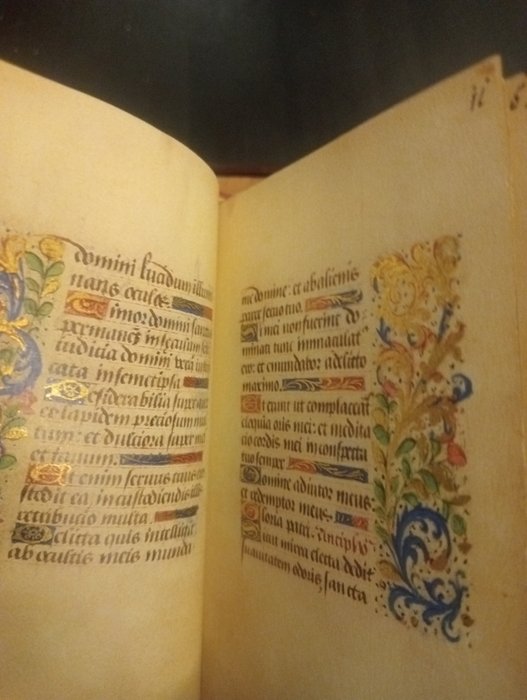 domini lucidum illumi
nans oculos.
Timor domini sanctus
permanes in seculum seculi
iudicia domini vera iustifi
cata in semetipsa
Desiderabilia super aurum
et lapidem preciosum mul
tum: et dulciora super mel
et favum.
Etenim servus tuus cus
todit ea in custodiendis illis
retributio multa.
Delicta quis intelligit
ab ocultis meis munda
me domine: et ab alienis
parce servo tuo.
Si mei non fuerint do-
minati tunc immaculat9
ero: et emundabor a delicto
maximo.
Et erunt ut complaceat
eloquia oris mei: et medita
cio cordis mei in conspectu
tuo semper
Domine adiutor meus
et redemptor meus.
Gloria patri. Principi9
Sicut mirra electa dedit
suavitatem odoris, sancta